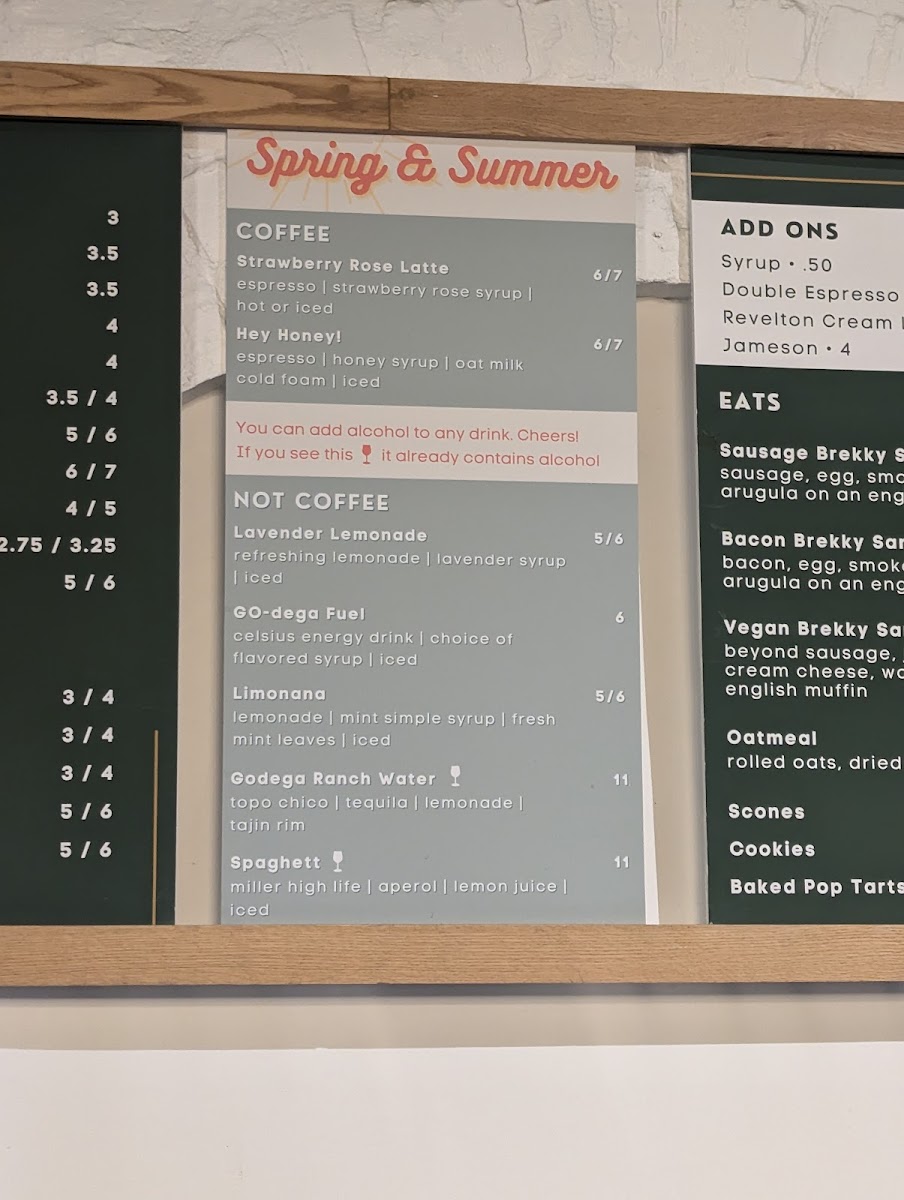 3
3.5
3.5
4
4
3.5 / 4
5 / 6
6 / 7
4 / 5
2.75 / 3.25
5 / 6
3 / 4
3 / 4
3 / 4
5 / 6
5 / 6
Spring & Summer
COFFEE
Strawberry Rose Latte 6/7
espresso | strawberry rose syrup |
hot or iced
Hey Honey! 6/7
espresso | honey syrup | oat milk
cold foam | iced
You can add alcohol to any drink. Cheers!
If you see this it already contains alcohol
NOT COFFEE
Lavender Lemonade 5/6
refreshing lemonade | lavender syrup
| iced
GO-dega Fuel 6
celsius energy drink | choice of
flavored syrup | iced
Limonana 5/6
lemonade | mint simple syrup | fresh
mint leaves | iced
Godega Ranch Water 11
topo chico | tequila | lemonade |
tajin rim
Spaghett 11
miller high life | aperol | lemon juice |
iced
ADD ONS
Syrup • .50
Double Espresso
Revelton Cream
Jameson • 4
EATS
Sausage Brekky
sausage, egg,
arugula on an
Bacon Brekky
bacon, egg,
arugula on an
Vegan Brekky
beyond sausage,
cream cheese,
english muffin
Oatmeal
rolled oats, dried
Scones
Cookies
Baked Pop Tarts